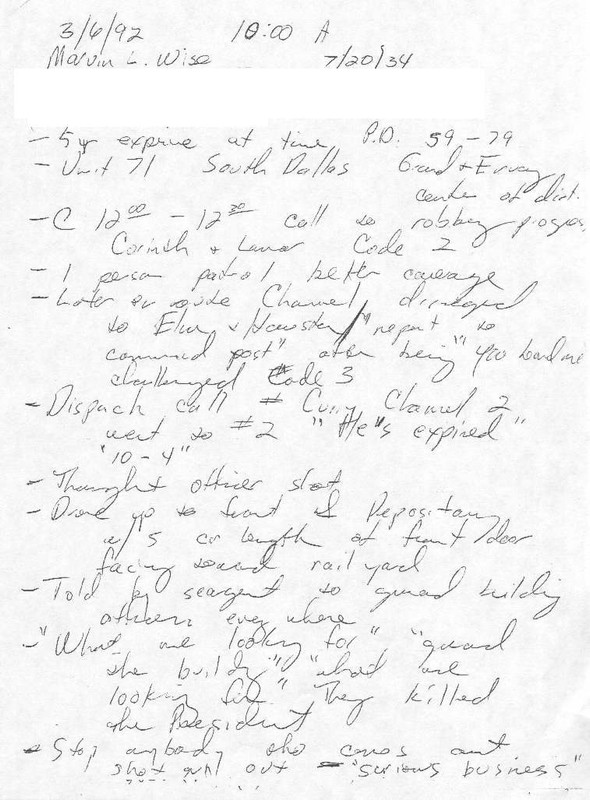 3/6/92 10:00 A
Marvin L. Wise 7/20/34
- 5 yr at time P.D. 59-79
- Unit 71 South Dallas Grand + Ervay
center of dist.
- C 12 00 - 12 30 call to robbery
Corinth + Lamar Code 2
- 1 person patrol better coverage
- Later en route Channel disregard
to Elm + Houston "report to
command post" after being
challenged Code 3
- Dispach call Curry Channel 2
went to #2 "He's expired"
"10-4"
- Thought officer shot
- Drove up to front of Depository
w/ 5 car length of front door
facing toward rail yard
- Told by seargent to guard bilding
officers every where
- "What we looking for" "guard
the building" "what we
looking for" They killed
the President
- Stop anybody who comes out
shot gun out - "serious business"